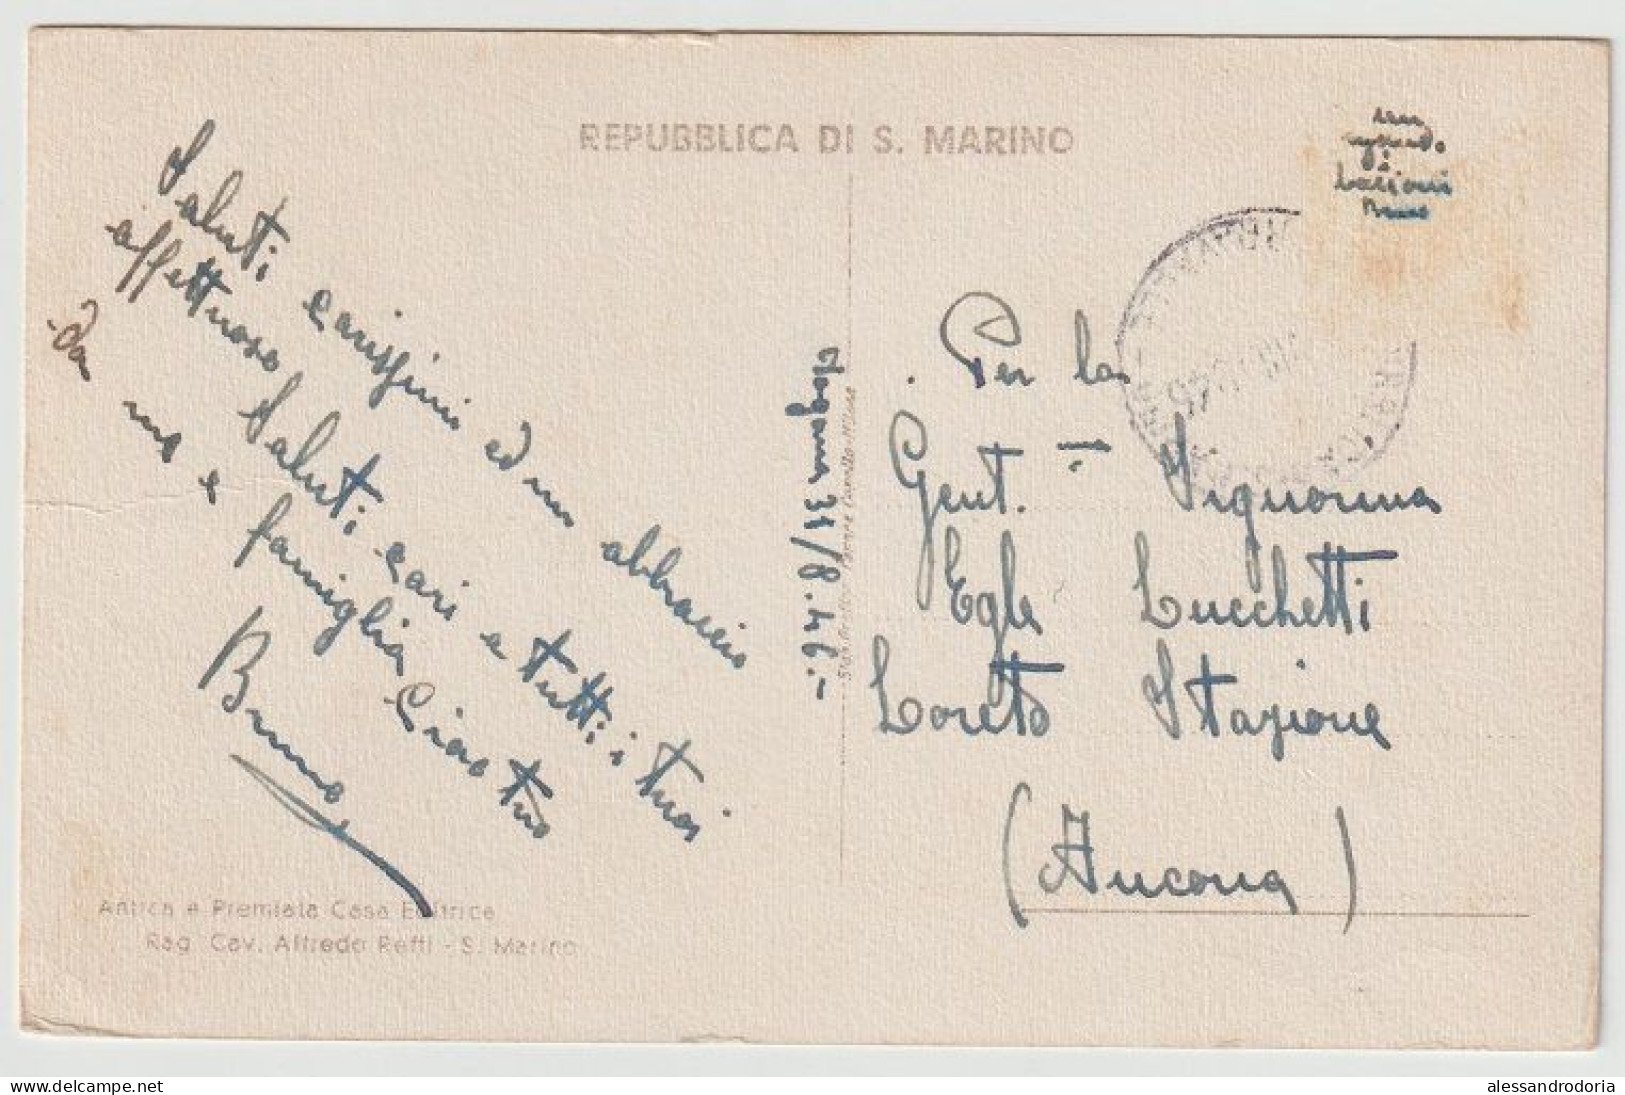 REPUBBLICA DI S. MARINO
Saluti carissimi ed un abbraccio
affettuoso Saluti cari a tutti i tuoi
da me e famiglia Ciao tuo
Bruno
31/8.46.-
Per la
Gent. Signorina
Egle Lucchetti
Loreto Stazione
(Ancona)
Bruno
Antica e Premiata Casa Editrice
Rag. Cav. Alfredo Reffi - S. Marino
alessandrodoria